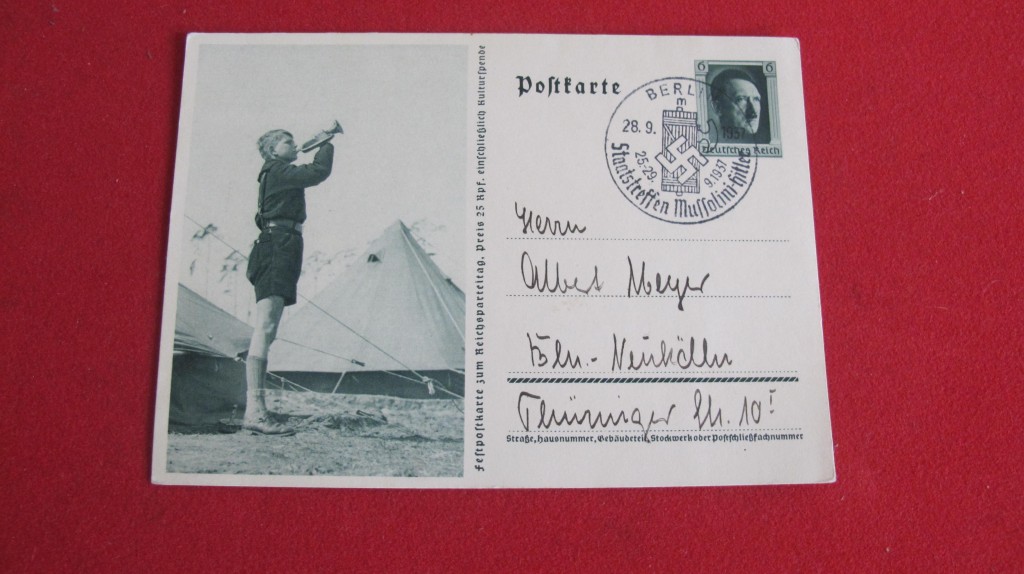 Festpostkarte zum Reichsparteitag. Preis 25 Rpf. einschließlich Kulturspende
Postkarte
6 6
Deutsches Reich
1937
BERLIN
28. 9.
25.-29. 9.1937
Staatstreffen Mussolini-Hitler
Herrn
Albert Meyer
Bln.-Neukölln
Thüringer Str. 10 I
Straße, Hausnummer, Gebäudeteil, Stockwerk oder Postschließfachnummer